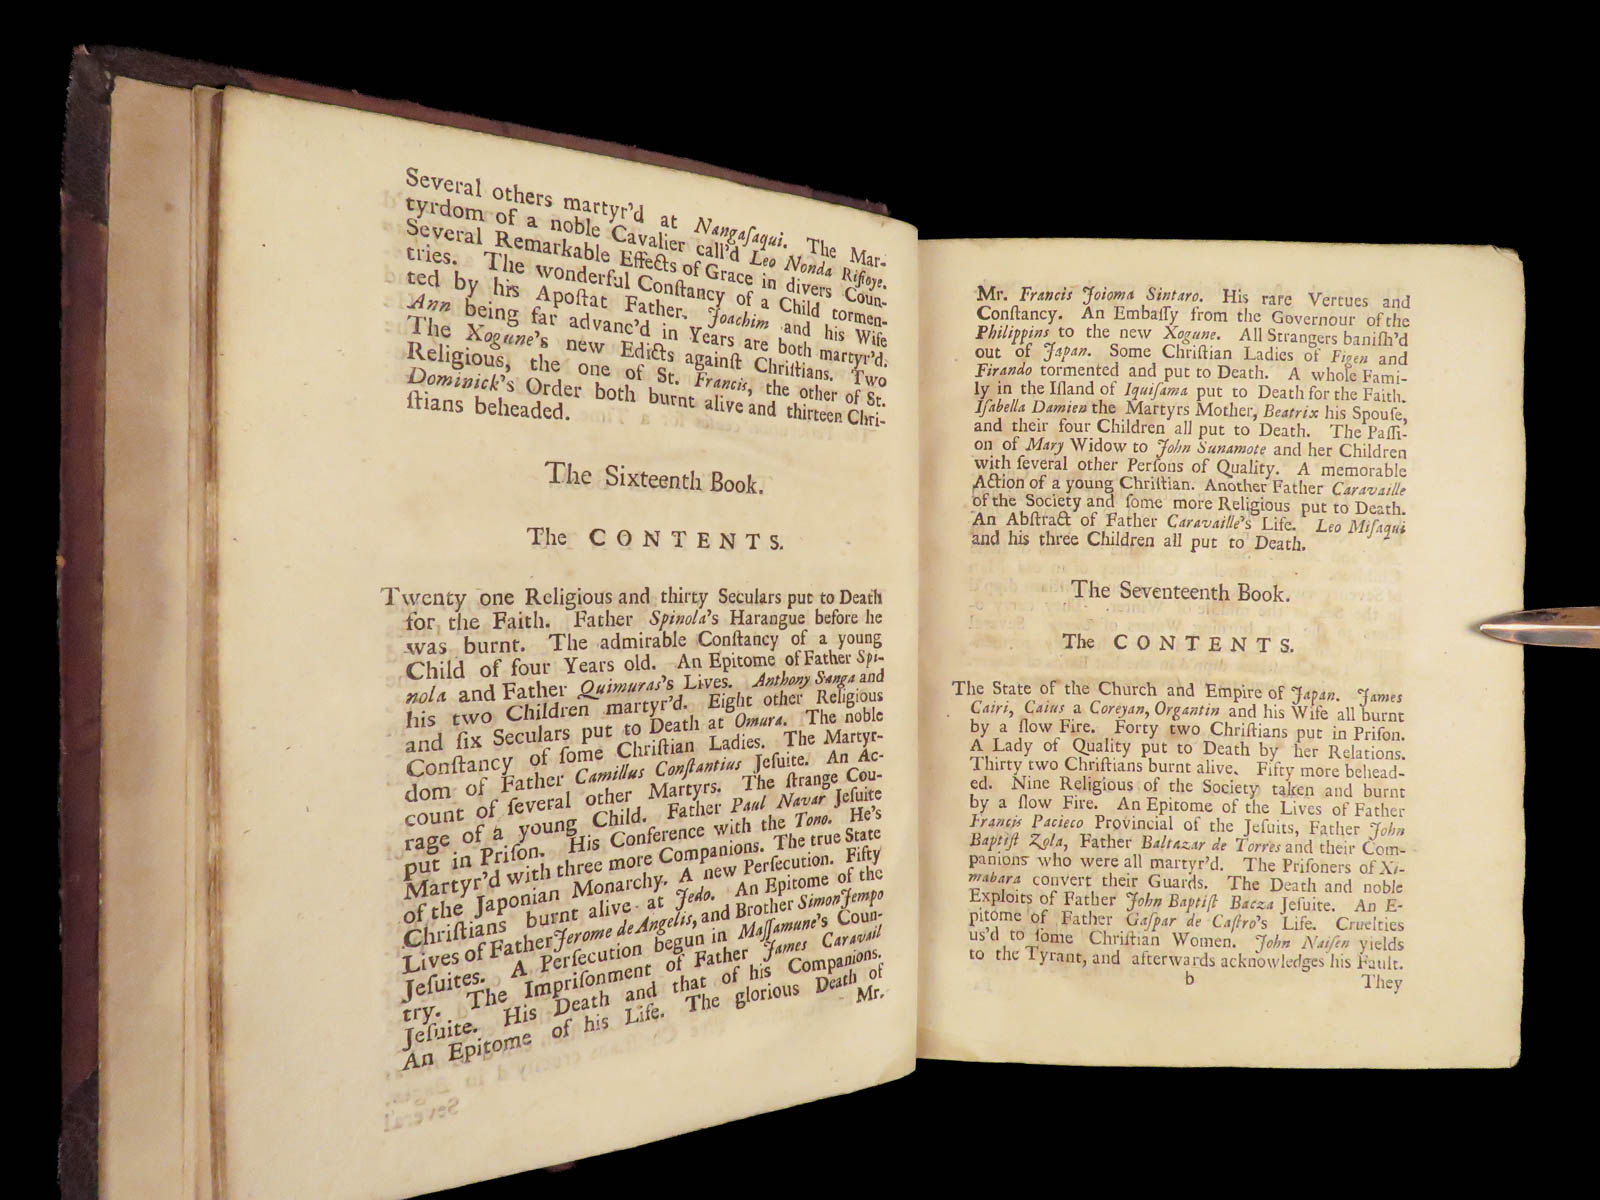 Several others martyr'd at Nangaſaqui. The Mar-
tyrdom of a noble Cavalier call'd Leo Nonda Rifioye.
Several Remarkable Effects of Grace in divers Coun-
tries. The wonderful Conſtancy of a Child tormen-
ted by his Apoſtat Father. Joachim and his Wife
Ann being far advanc'd in Years are both martyr'd.
The Xogune's new Edicts againſt Chriſtians. Two
Religious, the one of St. Francis, the other of St.
Dominick's Order both burnt alive and thirteen Chri-
ſtians beheaded.
The Sixteenth Book.
The CONTENTS.
Twenty one Religious and thirty Seculars put to Death
for the Faith. Father Spinola's Harangue before he
was burnt. The admirable Conſtancy of a young
Child of four Years old. An Epitome of Father Spi-
nola and Father Quimuras's Lives. Anthony Sanga and
his two Children martyr'd. Eight other Religious
and ſix Seculars put to Death at Omura. The noble
Conſtancy of ſome Chriſtian Ladies. The Martyr-
dom of Father Camillus Conſtantius Jeſuite. An Ac-
count of ſeveral other Martyrs. The ſtrange Cou-
rage of a young Child. Father Paul Navar Jeſuite
put in Priſon. His Conference with the Tono. He's
Martyr'd with three more Companions. The true State
of the Japonian Monarchy. A new Perſecution. Fifty
Chriſtians burnt alive at Jedo. An Epitome of the
Lives of Father Jerome de Angelis, and Brother Simon Jempo
Jeſuites. A Perſecution begun in Maſſamune's Coun-
try. The Impriſonment of Father James Caravail
Jeſuite. His Death and that of his Companions.
An Epitome of his Life. The glorious Death of
Mr.
Several
Mr. Francis Joioma Sintaro. His rare Vertues and
Conſtancy. An Embaſſy from the Governour of the
Philippins to the new Xogune. All Strangers baniſh'd
out of Japan. Some Chriſtian Ladies of Figen and
Firando tormented and put to Death. A whole Fami-
ly in the Iſland of Iquiſama put to Death for the Faith.
Iſabella Damien the Martyrs Mother, Beatrix his Spouſe,
and their four Children all put to Death. The Paſſi-
on of Mary Widow to John Sunamote and her Children
with ſeveral other Perſons of Quality. A memorable
Action of a young Chriſtian. Another Father Caravaille
of the Society and ſome more Religious put to Death.
An Abſtract of Father Caravaille's Life. Leo Miſaqui
and his three Children all put to Death.
The Seventeenth Book.
The CONTENTS.
The State of the Church and Empire of Japan. James
Cairi, Caius a Coreyan, Organtin and his Wife all burnt
by a ſlow Fire. Forty two Chriſtians put in Priſon.
A Lady of Quality put to Death by her Relations.
Thirty two Chriſtians burnt alive. Fifty more behead-
ed. Nine Religious of the Society taken and burnt
by a ſlow Fire. An Epitome of the Lives of Father
Francis Pacieco Provincial of the Jeſuits, Father John
Baptiſt Zola, Father Baltazar de Torres and their Com-
panions who were all martyr'd. The Priſoners of Xi-
mabara convert their Guards. The Death and noble
Exploits of Father John Baptiſt Baeza Jeſuite. An E-
pitome of Father Gaſpar de Caſtro's Life. Cruelties
us'd to ſome Chriſtian Women. John Naiſen yields
to the Tyrant, and afterwards acknowledges his Fault.
b
They